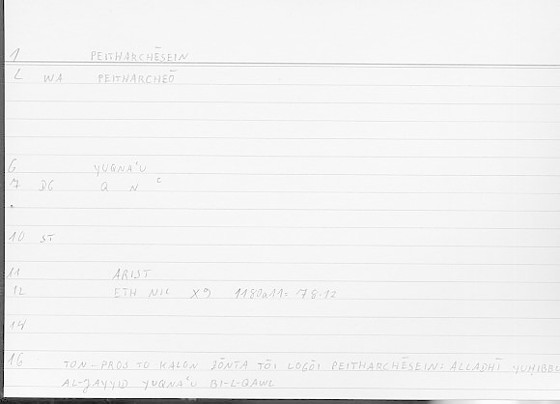 1 PEITHARCHĒSEIN
2 WA PEITHARCHEŌ
6 YUQNAʿU
7 DG Q N ʿ
10 ST
11 ARIST
12 ETH NIC X 9 1180a11= 78.12
14
16 TON-PROS TO KALON ZŌNTA TŌI LOGŌI PEITHARCHĒSEIN: ALLADHĪ
AL-JAYYID YUQNAʿU BI-L-QAWL